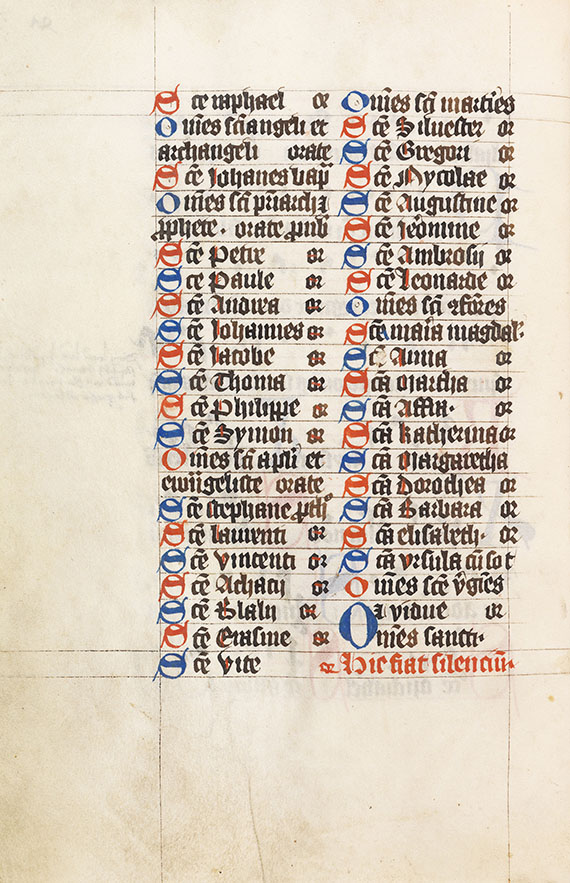 Sce raphael or
Om̄es sc̄i angeli et
archangeli orate
Sc̄e Johanes bap̄
Om̄es sc̄i pr̄iarch
ꝓphete · orate ꝓ nob
Sc̄e Petre or
Sc̄e Paule or
Sc̄e Andrea or
Sc̄e Johannes or
Sc̄e Jacobe or
Sc̄e Thoma or
Sc̄e Philippe or
Sc̄e Symon or
Om̄es sc̄i apl̄i et
ewāgeliste orate
Sc̄e stephane
Sc̄e laurenti or
Sc̄e vincenti or
Sc̄e Achacij or
Sc̄e Blasij or
Sc̄e Erasme or
Sc̄e vite or
Om̄es sc̄i martires
Sc̄e Siluester or
Sc̄e Gregori or
Sc̄e Nycolae or
Sc̄e Augustine or
Sc̄e jeronime or
Sc̄e Ambrosij or
Sc̄e Leonarde or
Om̄es sc̄i ꝯfores
Sc̄a maria magdal·
Sc̄a Anna or
Sc̄a Martha or
Sc̄a Affra· or
Sc̄a katherina or
Sc̄a Margaretha
Sc̄a Dorothea or
Sc̄a Barbara or
Sc̄a elisabeth· or
Sc̄a vrsula cū so t
Om̄es sc̄e v̄gīes
et vidue or
Om̄es sancti·
Hic fiat silenciū·